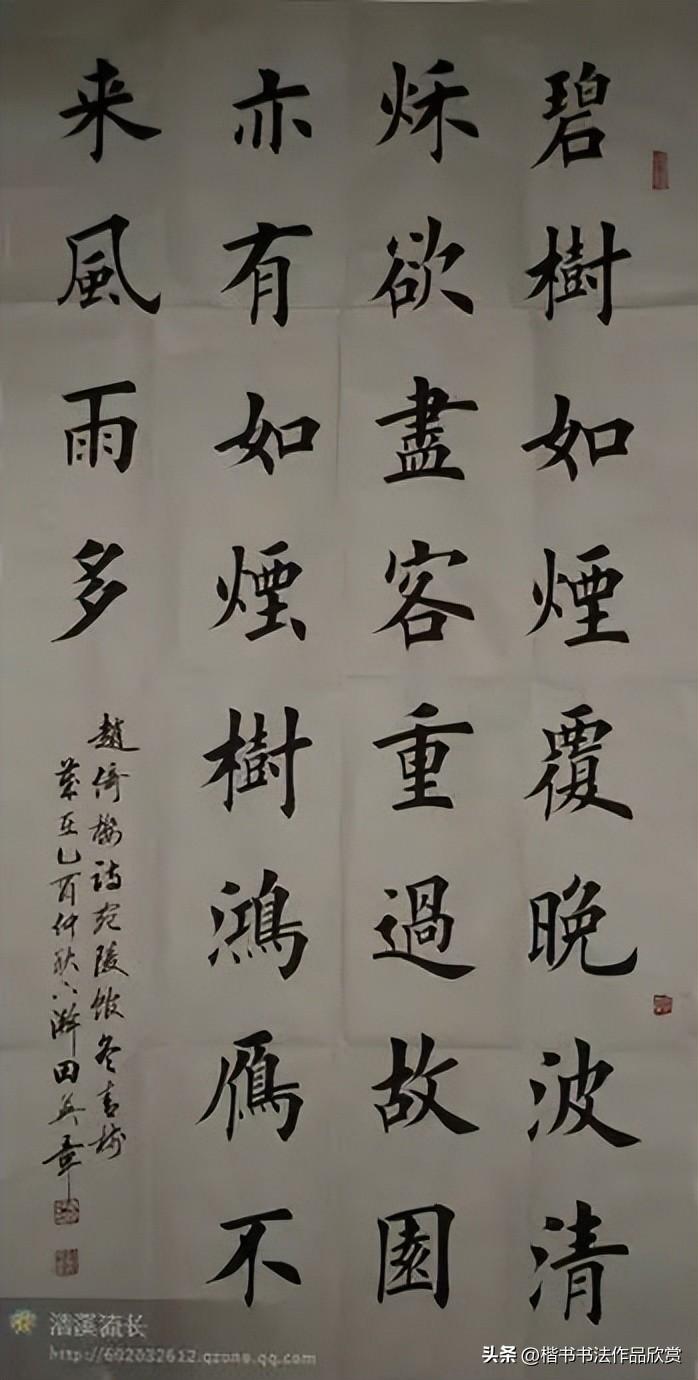 碧樹如煙覆晚波清
烁欲盡客重過故園
亦有如煙樹鴻鴈不
来風雨多
趙倚樓詩宛陵館冬青樹
歲在乙酉仲秋八游田英章
潘溪流长
http://602032612.qzone.qq.com
头条 @楷书书法作品欣赏